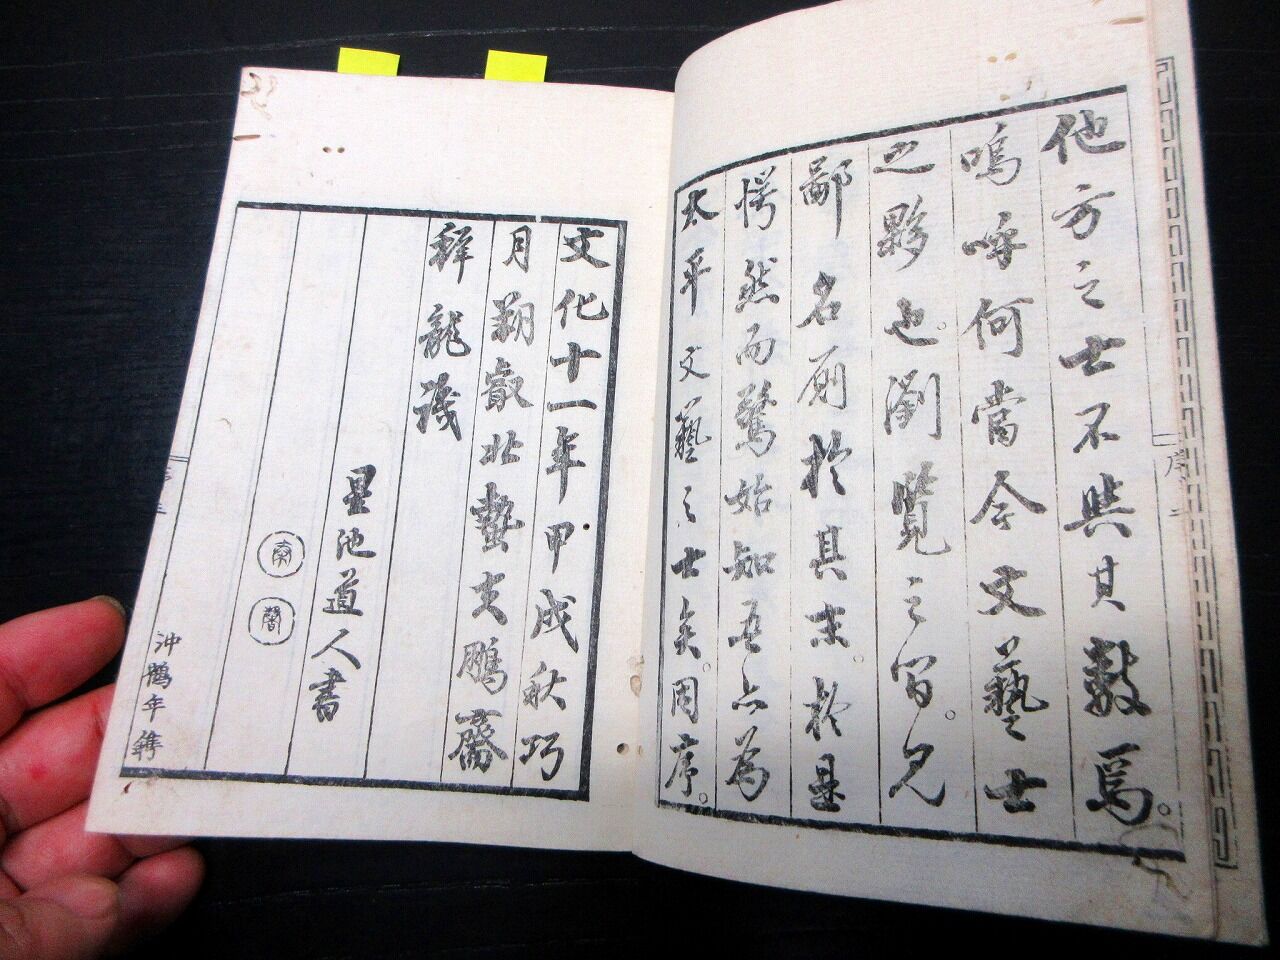 他方之士不與其數焉。
嗚呼何當今文藝士
之夥也。瀏覽之間。見
鄙名廁於其末。於是
愕然而驚始知吾亦為
太平文藝之士矣。因序。
序 二
文化十一年甲戌秋巧
月朔叡北蟄叟鵬齋
釋龍護
星池道人書
沖鶴年鐫